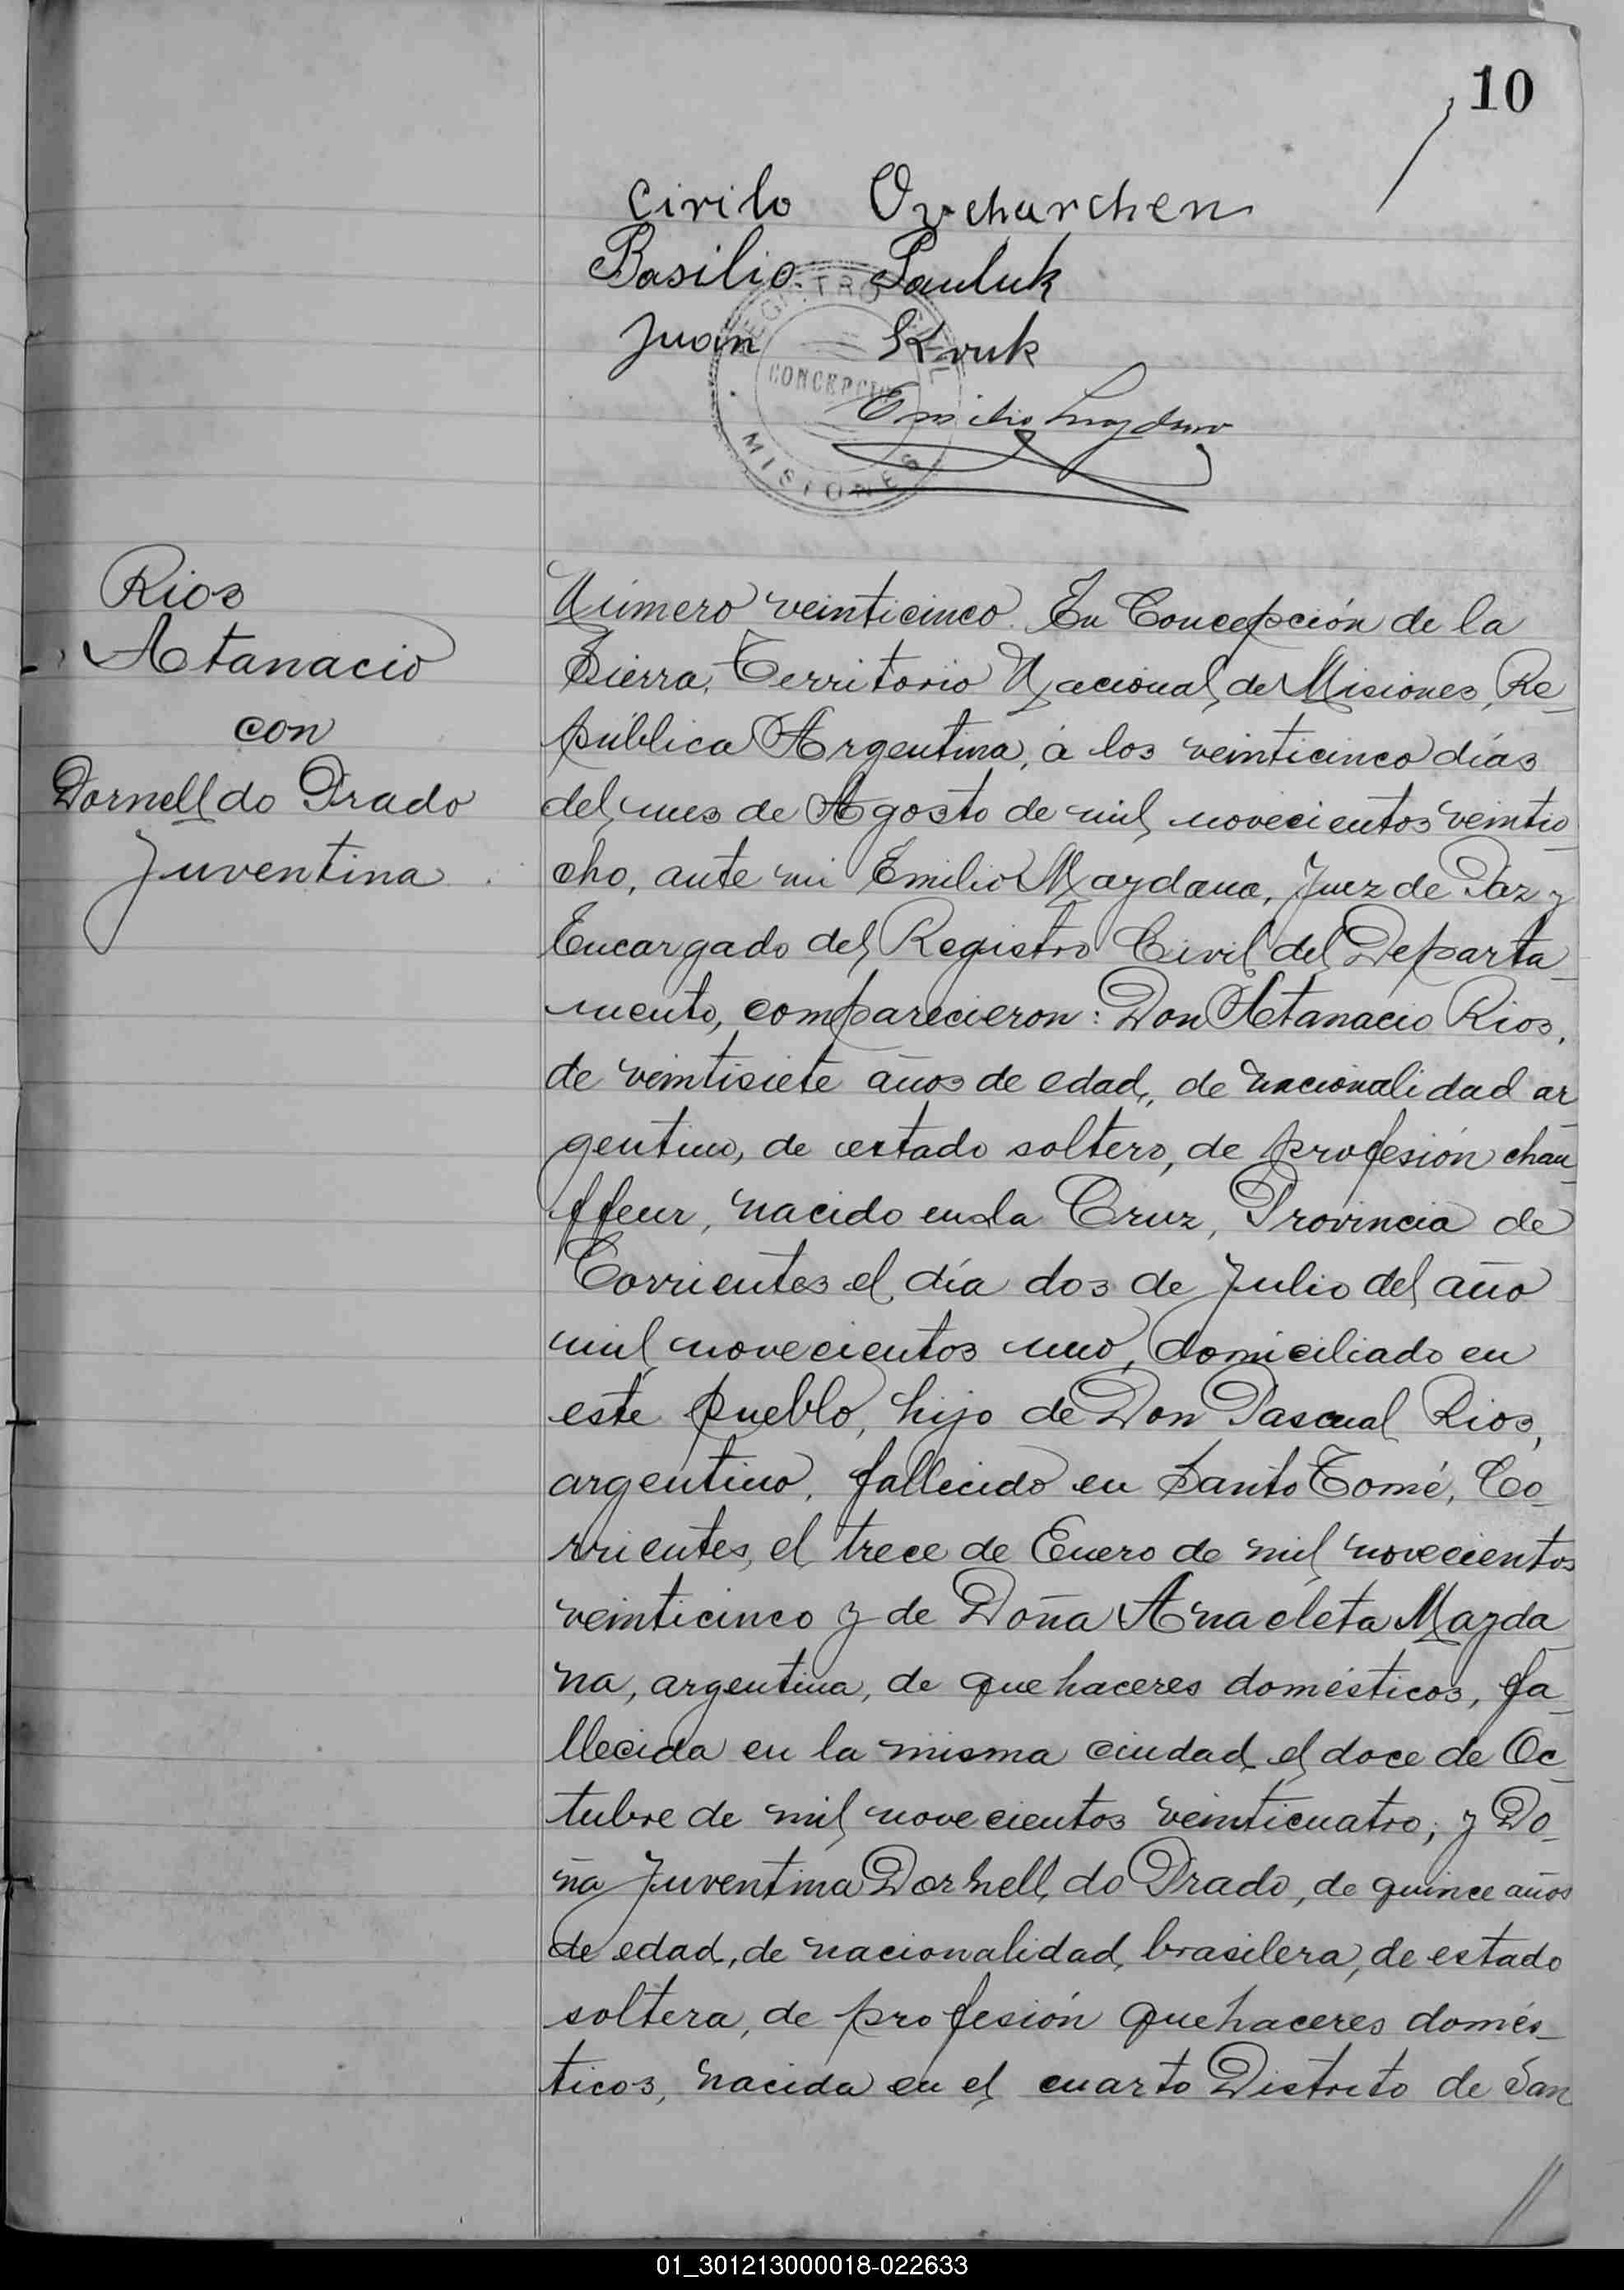 10
Cirilo Ovcharchen
Basilio Pauluk
Juan Kruk
REGISTRO CIVIL
CONCEPCIÓN
MISIONES
Emilio Maydana
Rios
Atanacio
con
Dornell do Prado
Juventina
Número veinticinco. En Concepción de la
Sierra, Territorio Nacional de Misiones, Re_
pública Argentina, á los veinticinco días
del mes de Agosto de mil novecientos veintio_
cho, ante mi Emilio Maydana, Juez de Paz y
Encargado del Registro Civil del Departa_
mento, comparecieron: Don Atanacio Rios,
de veintisiete años de edad, de nacionalidad ar_
gentino, de estado soltero, de profesión chau_
ffeur, nacido en La Cruz, Provincia de
Corrientes el día dos de Julio del año
mil novecientos uno, domiciliado en
este pueblo, hijo de Don Pascual Rios,
argentino, fallecido en Santo Tomé, Co_
rrientes, el trece de Enero de mil novecientos
veinticinco y de Doña Anacleta Mayda_
na, argentina, de que haceres domésticos, fa_
llecida en la misma ciudad el doce de Oc_
tubre de mil novecientos veinticuatro; y Do_
ña Juventina Dornell do Prado, de quince años
de edad, de nacionalidad brasilera, de estado
soltera, de profesión que haceres domés_
ticos, nacida en el cuarto Distrito de San
01_301213000018-022633